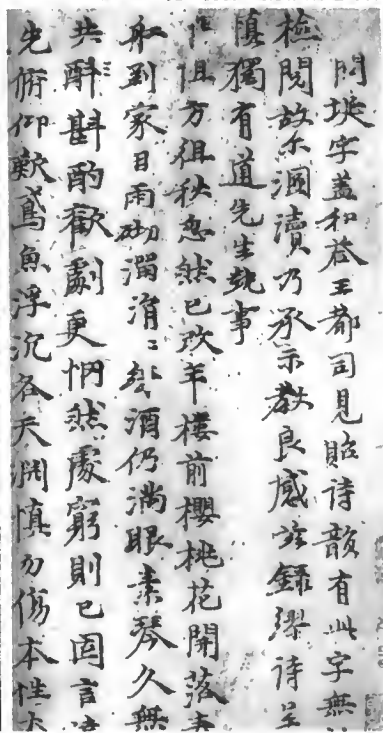 問埏字蓋和答王都司見貽詩韻有此字無
檢閱故尓溷瀆乃承示教良感玆錄謬詩呈
慎獨有道先生執事
徂方徂秋忽然已改年樓前櫻桃花開落
船到家日雨砌潤涓〻 酒仍滿眼素琴久無
共酌斟酌歡劇更惘然處窮則已固言
先俯仰歎鳶魚浮沉各天淵慎勿傷本性